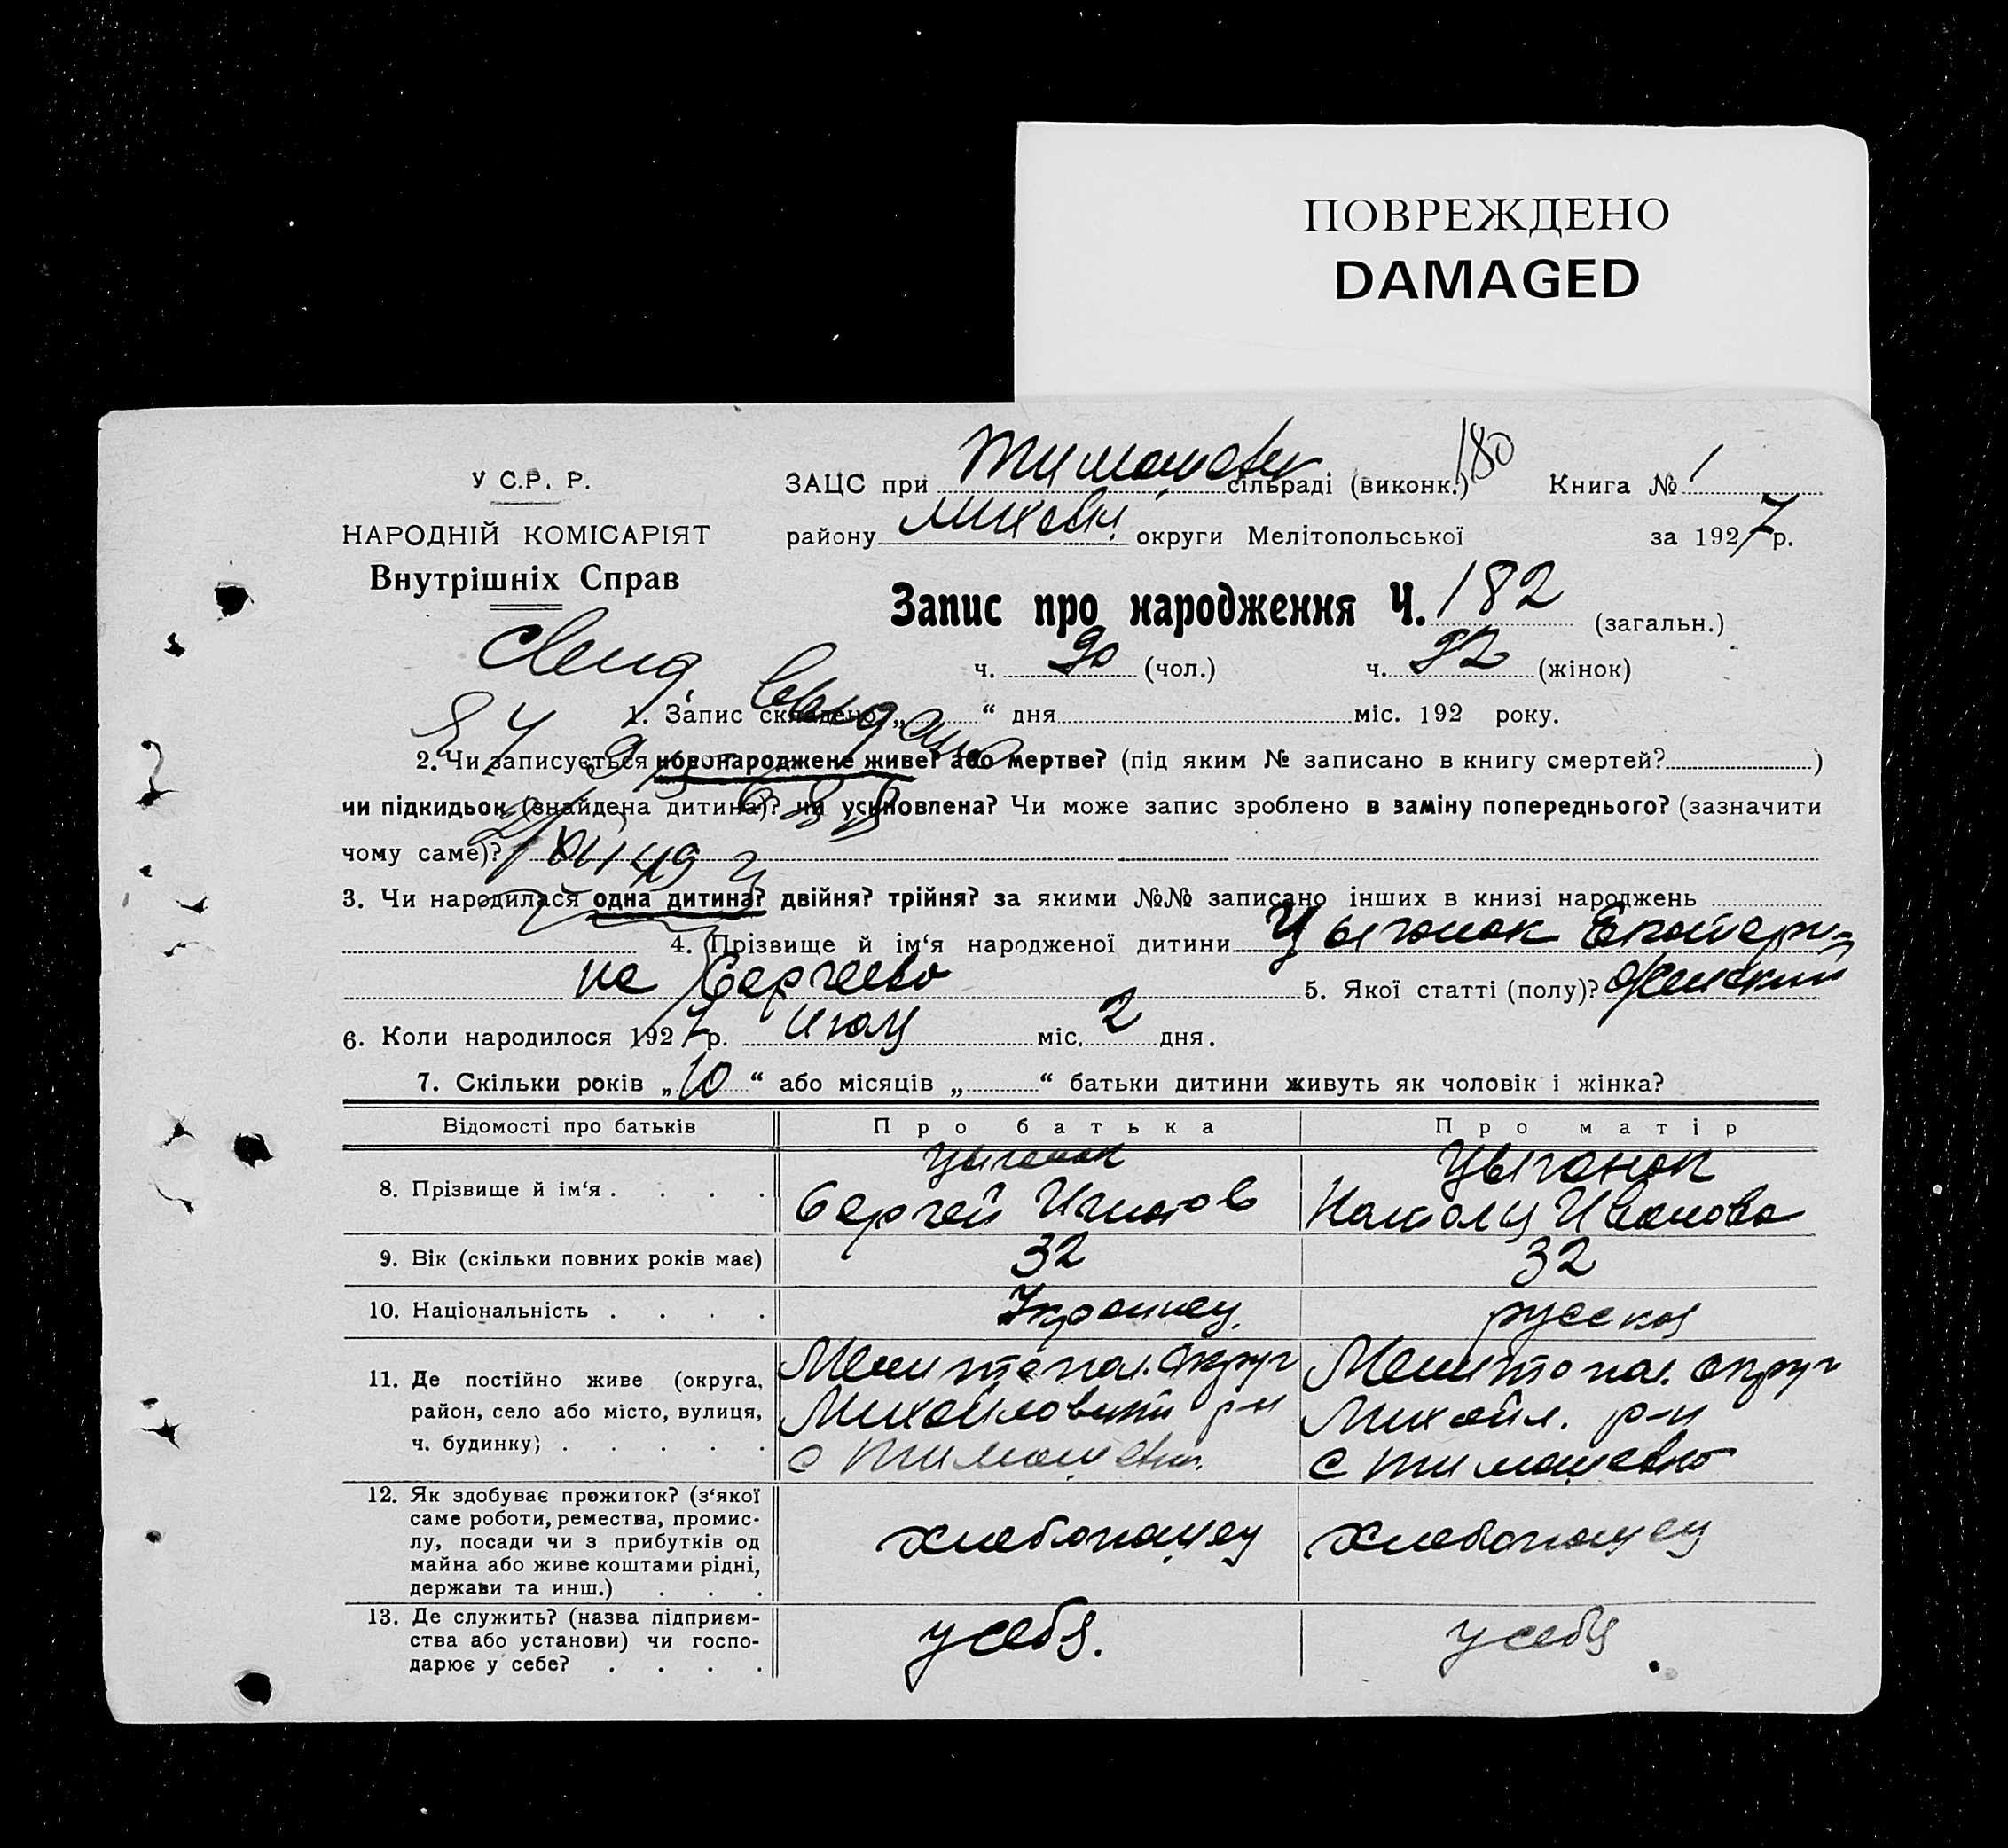 ПОВРЕЖДЕНО
DAMAGED
У С.Р. Р.
НАРОДНІЙ КОМІСАРІЯТ
Внутрішніх Справ
ЗАЦС при Тимошевк сільраді (виконк.) 180 Книга № 1
району Мих округи Мелітопольської за 1927 р.
Запис про народження Ч. 182 (загальн.)
ч. 90 (чол.) ч. 92 (жінок)
Свид
1. Запис складено „ “ дня міс. 192 року.
2. Чи записується новонароджене живе? або мертве? (під яким № записано в книгу смертей? )
чи підкидьок (знайдена дитина)? чи усиновлена? Чи може запис зроблено в заміну попереднього? (зазначити
чому саме)?
3. Чи народилася одна дитина? двійня? трійня? за якими №№ записано інших в книзі народжень
4. Прізвище й ім‘я народженої дитини Цыганок Екатери-
на Сергеева 5. Якої статті (полу)? Женский
6. Коли народилося 1927 р. июля міс. 2 дня.
7. Скільки років „ 10 “ або місяців „ “ батьки дитини живуть як чоловік і жінка?
Відомості про батьків Про батька Про матір
8. Прізвище й ім‘я . . . . Цыганок Сергей Игнатов Цыганок Наталя Иванова
9. Вік (скільки повних років має) 32 32
10. Національність . . . . Украинец. русская
11. Де постійно живе (округа, Мелитопол. округ Мелитопол. округ
район, село або місто, вулиця, Михайловский р-н Михайл. р-н
ч. будинку) . . . . . с Тимошевка с Тимошевка
12. Як здобуває прожиток? (з‘якої
саме роботи, ремества, промис-
лу, посади чи з прибутків од хлебопашец хлебопашец
майна або живе коштами рідні,
держави та инш.) . . .
13. Де служить? (назва підприєм-
ства або установи) чи госпо- у себя. у себя
дарює у себе? . . . .